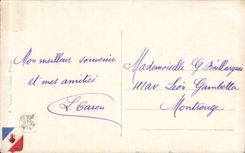 Mon meilleur souvenir
et mes amitiés
L. Caron
Mademoiselle G
Av Léon Gambetta
Montrouge